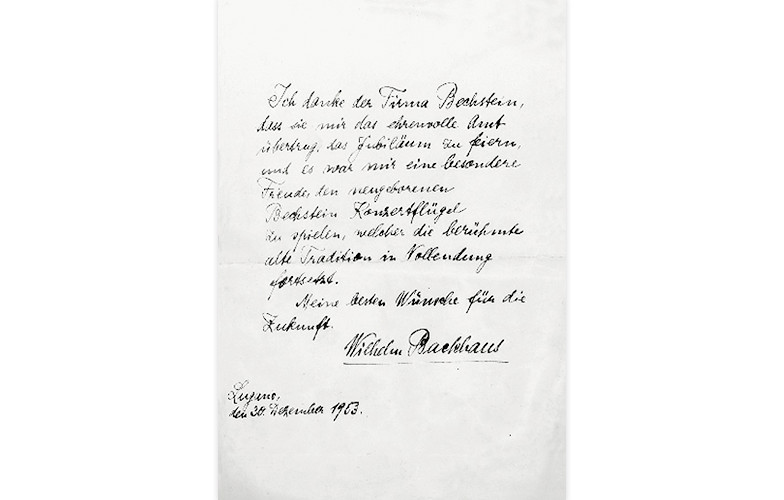 Ich danke der Firma Bechstein,
dass sie mir das ehrenvolle Amt
übertrug, das Jubiläum zu feiern,
und es war mir eine besondere
Freude, den neugeborenen
Bechstein Konzertflügel
zu spielen, welcher die berühmte
alte Tradition in Vollendung
fortsetzt.
Meine besten Wünsche für die
Zukunft.
Wilhelm Backhaus
Lugano,
den 30. Dezember 1953.